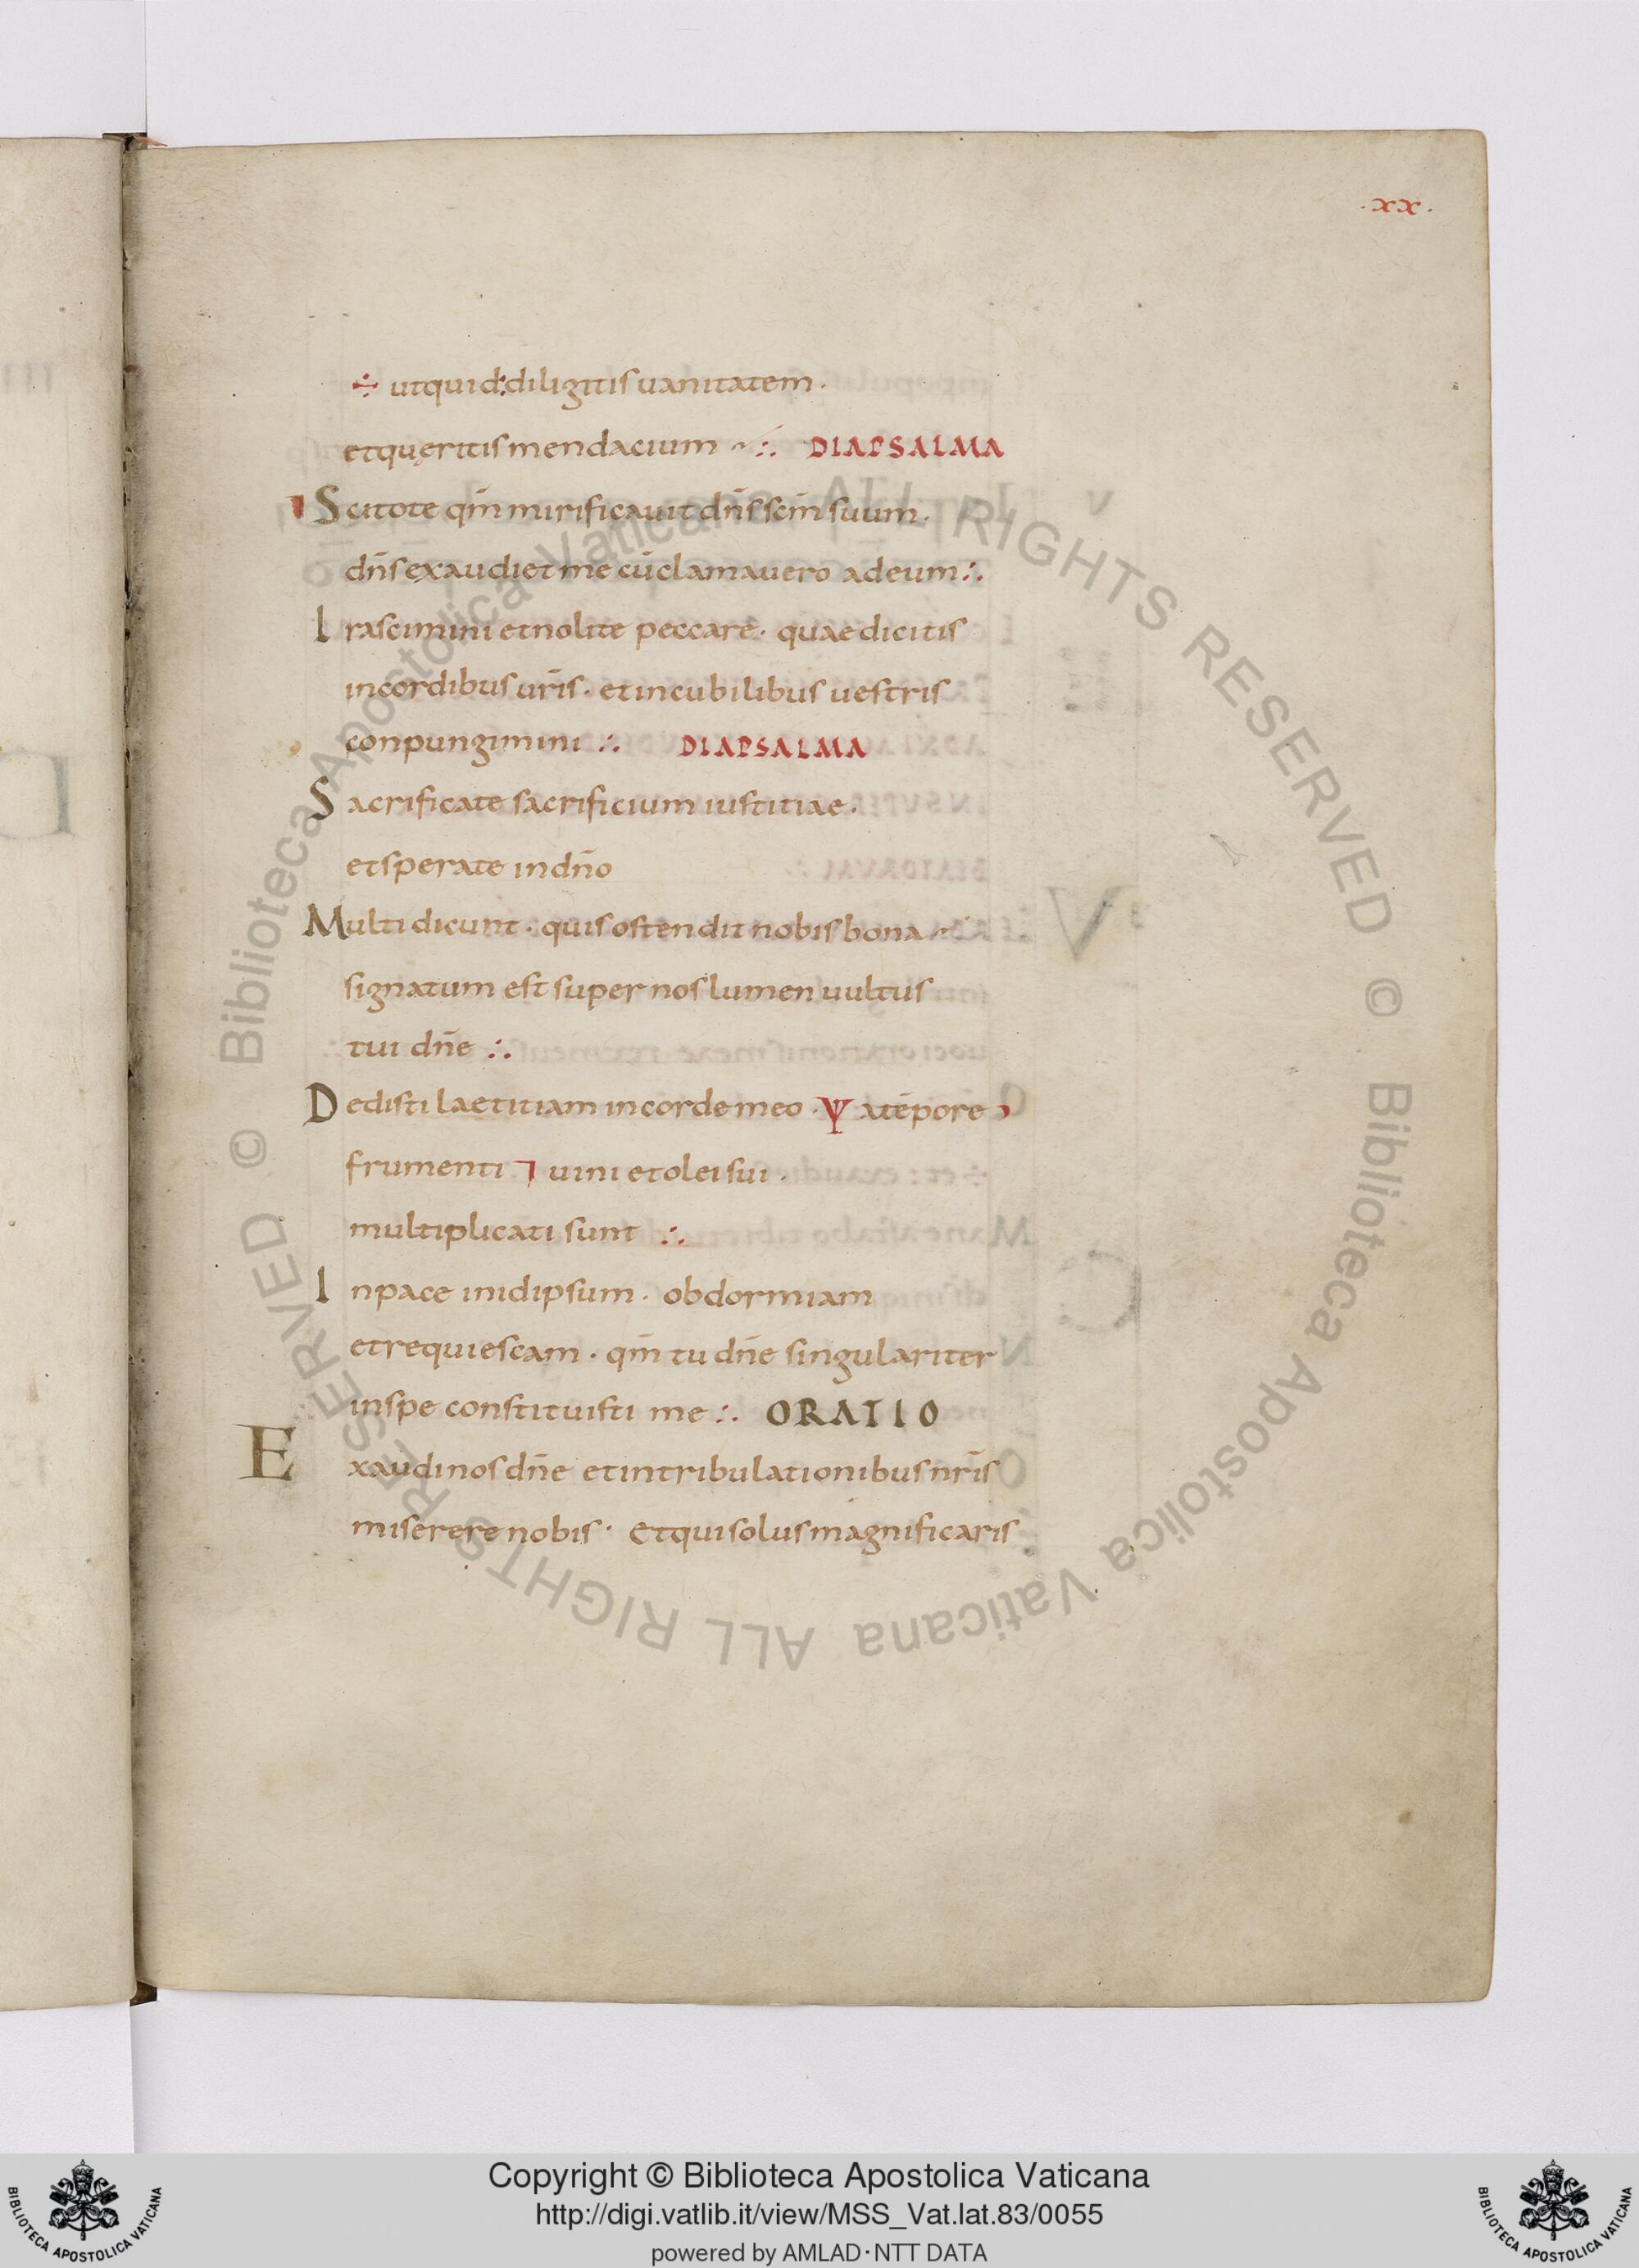 ·xx·
÷ utquid:diligitis uanitatem ·
et quęritis mendacium ∴ DIAPSALMA
Scitote qm̄ mirificauit dn̄s scm̄ suum ·
dn̄s exaudiet me cū clamauero ad eum ∴
Irascimini et nolite peccare · quae dicitis
in cordibus ur̄is · et in cubilibus uestris
conpungimini ∴ DIAPSALMA
Sacrificate sacrificium iustitiae ·
et sperate in dn̄o
Multi dicunt · quis ostendit nobis bona
signatum est super nos lumen uultus
tui dn̄e ∴
Dedisti laetitiam in corde meo · Ψ a tēpore
frumenti ⁊ uini et olei sui ·
multiplicati sunt ∴
In pace in idipsum · obdormiam
et requiescam · qm̄ tu dn̄e singulariter
in spe constituisti me ∴ ORATIO
Exaudi nos dn̄e et in tribulationibus nr̄is
miserere nobis · Et qui solus magnificaris
© Biblioteca Apostolica Vaticana ALL RIGHTS RESERVED © Biblioteca Apostolica Vaticana ALL RIGHTS RESERVED
Copyright © Biblioteca Apostolica Vaticana
http://digi.vatlib.it/view/MSS_Vat.lat.83/0055
powered by AMLAD·NTT DATA
BIBLIOTECA APOSTOLICA VATICANA
BIBLIOTECA APOSTOLICA VATICANA